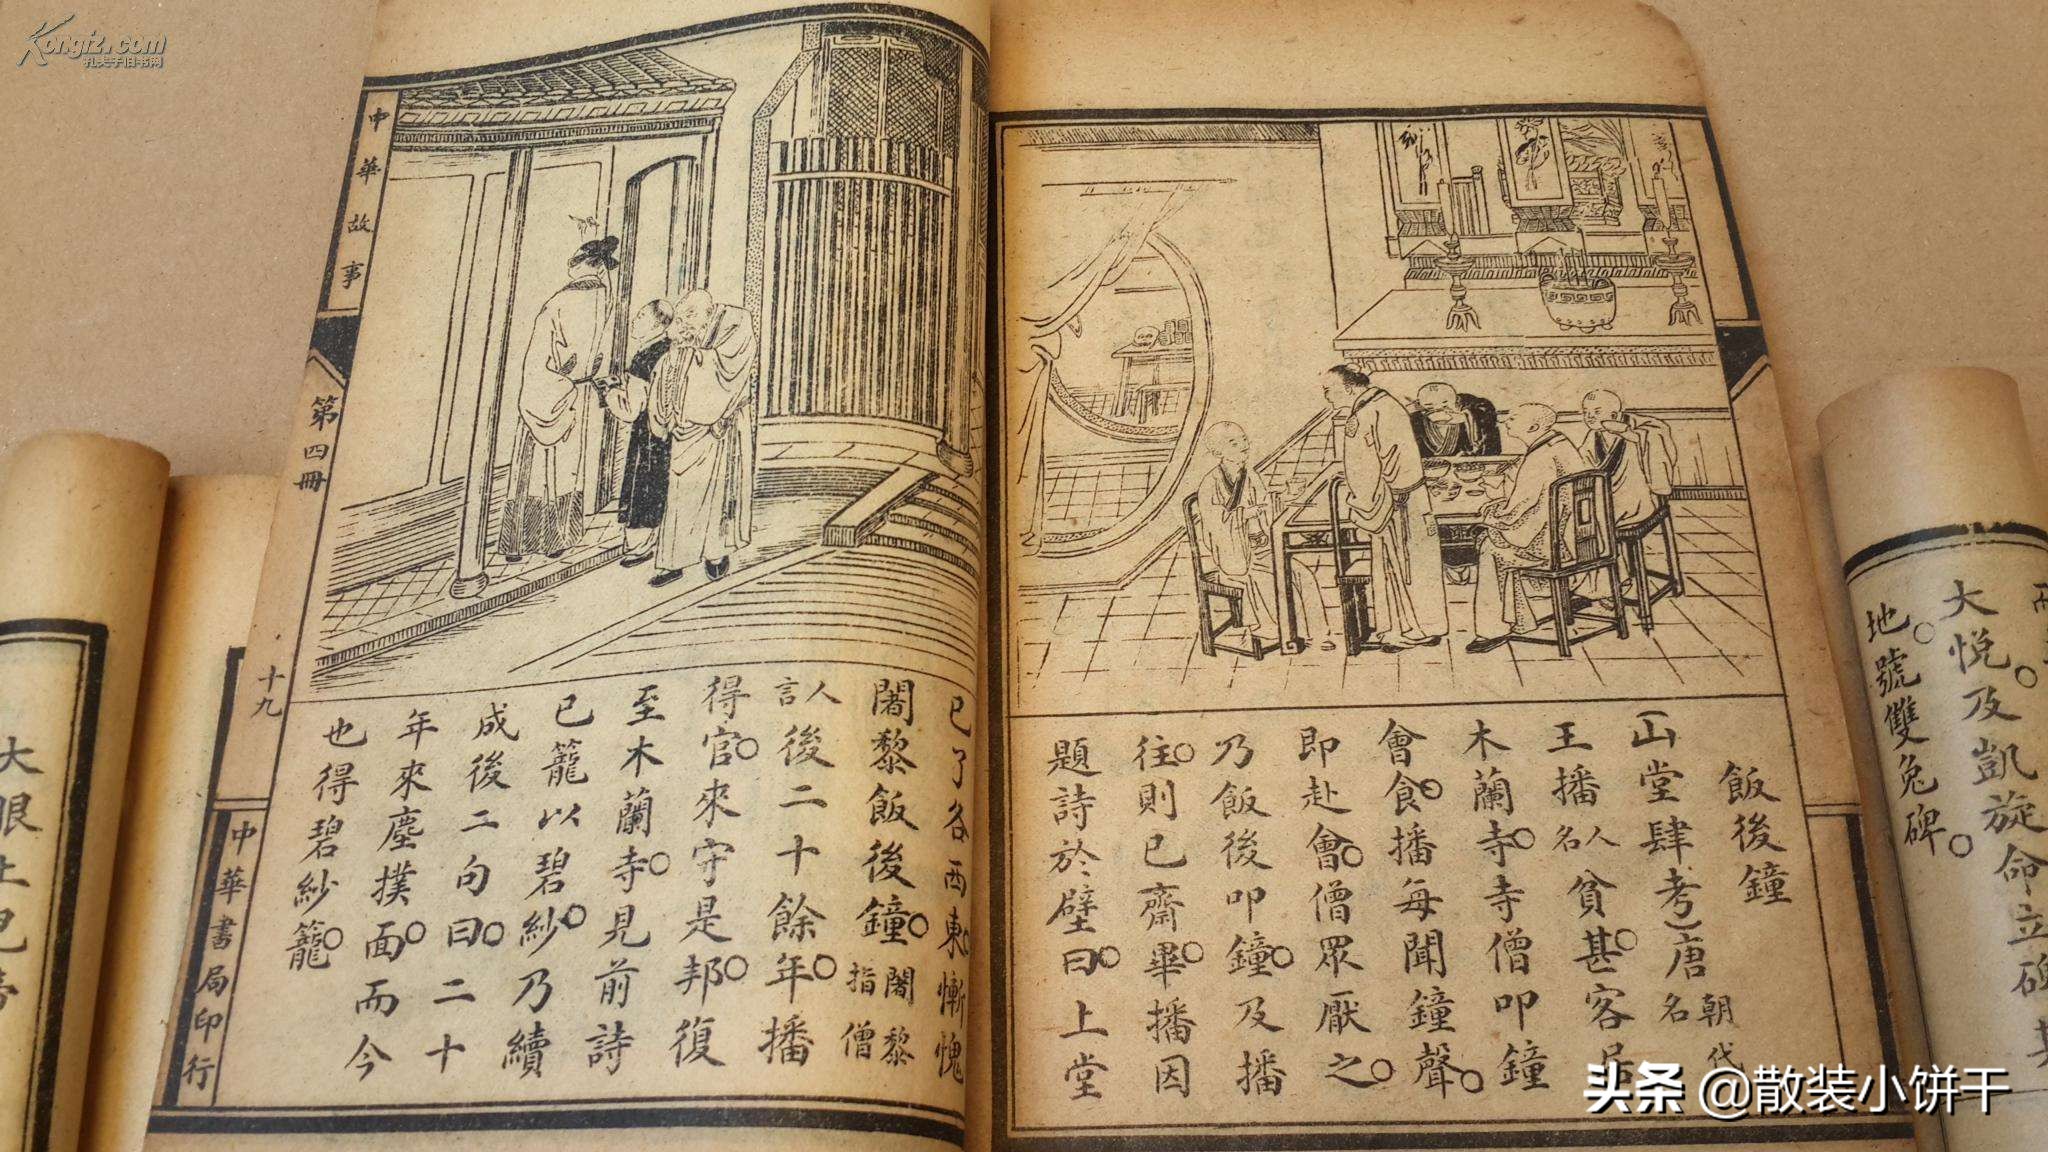 Kongfz.com
孔夫子旧书网
飯後鐘
(山堂肆考)唐朝代名
王播人名貧甚。客居
木蘭寺。寺僧叩鐘
會食。播每聞鐘聲。
即赴會。僧眾厭之。
乃飯後叩鐘。及播
往。則已齋畢。播因
題詩於壁曰。上堂
已了各西東。慚愧
闍黎飯後鐘。闍黎指僧
人言後二十餘年。播
得官。來守是邦。復
至木蘭寺。見前詩
已籠以碧紗。乃續
成後二句曰。二十
年來塵撲面。而今
也得碧紗籠。
中華故事
第四冊
十九
中華書局印行
大悅。及凱旋命立碑
地。號雙兔碑。
头条 @散装小饼干